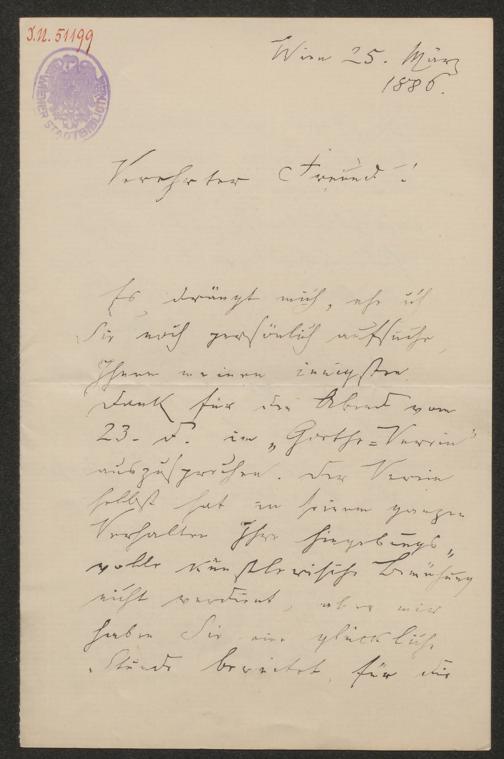 I.N. 51199
WIENER STADTBIBLIOTHEK
Wien 25. März
1886.
Verehrter Freund!
Es drängt mich, ehe ich
Sie noch persönlich aufsuche,
Ihnen meinen innigsten
Dank für den Abend vom
23. d. im „Goethe=Verein"
auszusprechen. Der Verein
selbst hat in seinem ganzen
Verhalten Ihre hingebungs„
volle künstlerische Bemühung
nicht verdient, aber mir
haben Sie eine glückliche
Stunde bereitet, für die